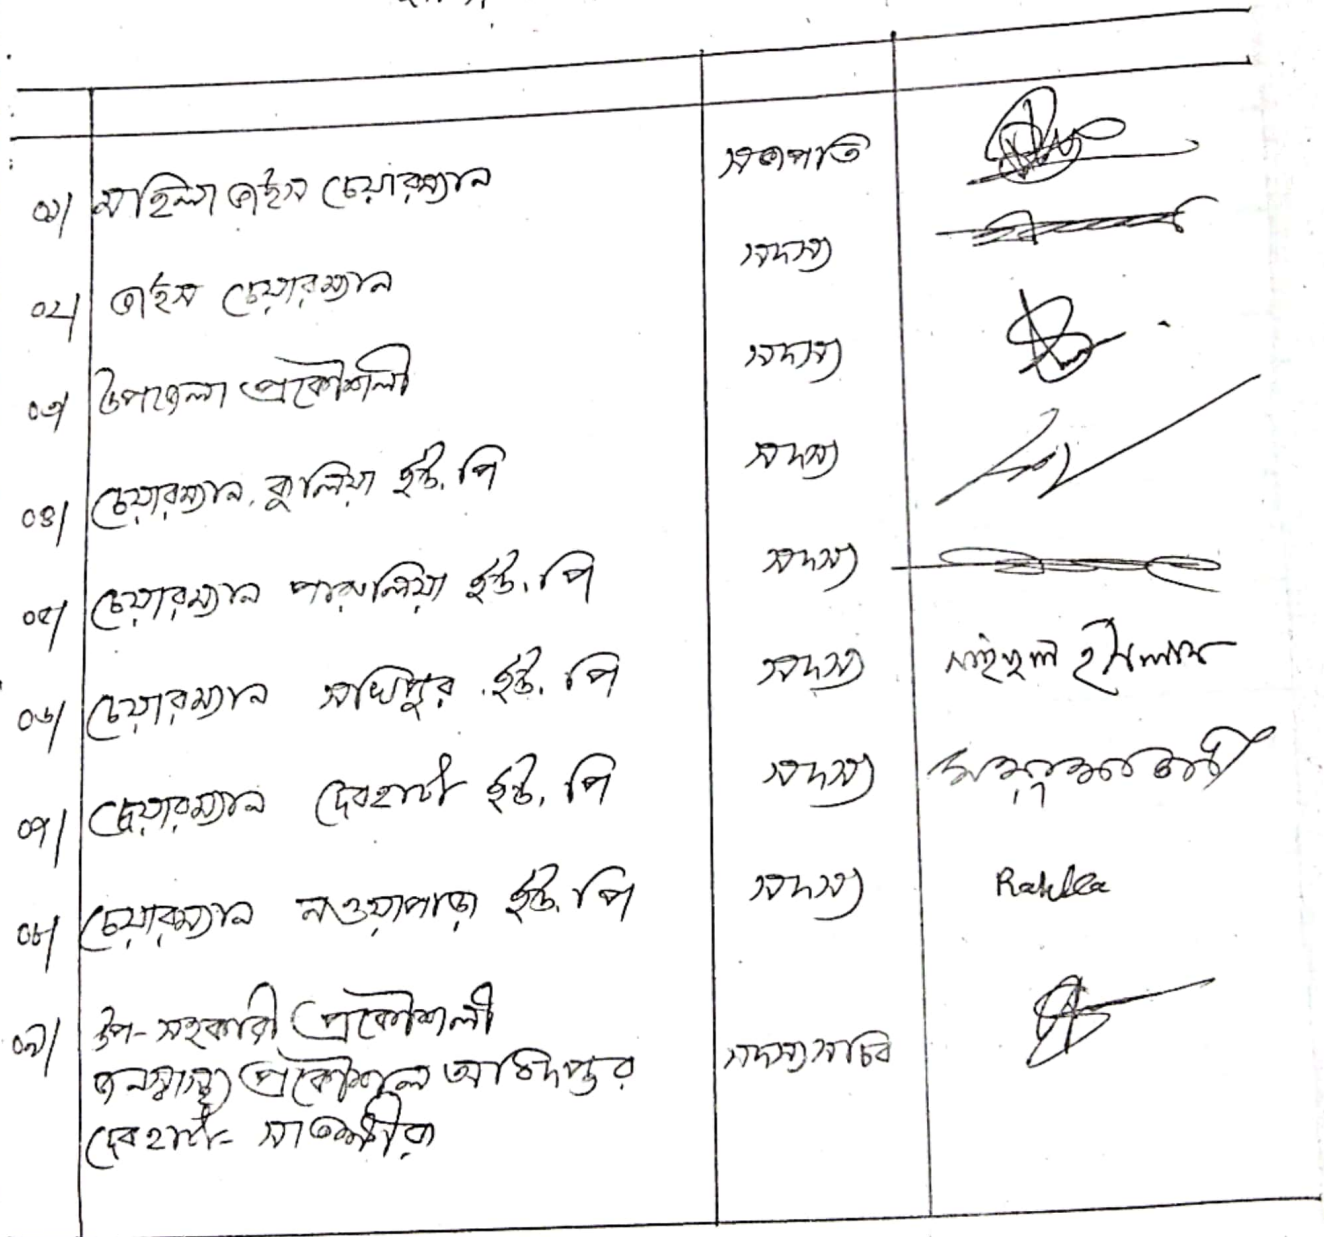 ০১। মহিলা ভাইস চেয়ারম্যান সভাপতি
০২। ভাইস চেয়ারম্যান সদস্য
০৩। উপজেলা প্রকৌশলী সদস্য
০৪। চেয়ারম্যান, কুলিয়া ইউ. পি সদস্য
০৫। চেয়ারম্যান পারুলিয়া ইউ. পি সদস্য
০৬। চেয়ারম্যান সখিপুর ইউ. পি সদস্য
০৭। চেয়ারম্যান দেবহাটা ইউ. পি সদস্য
০৮। চেয়ারম্যান নওয়াপাড়া ইউ. পি সদস্য
০৯। উপ-সহকারী প্রকৌশলী সদস্য সচিব
জনস্বাস্থ্য প্রকৌশল অধিদপ্তর
দেবহাটা- সাতক্ষীরা